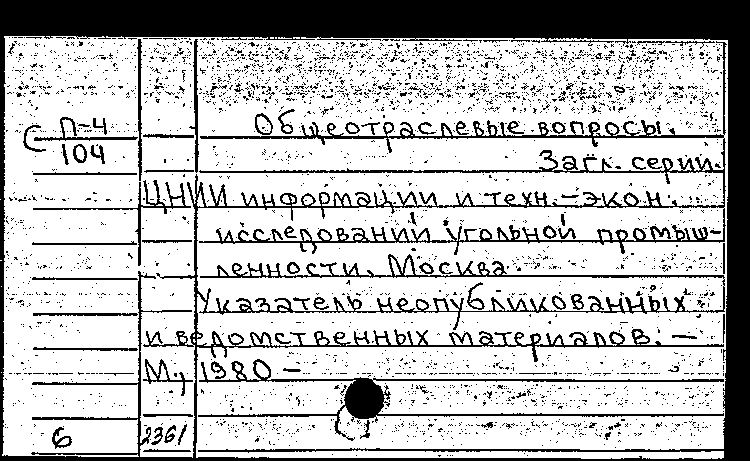 С П-4
104
Общеотраслевые вопросы.
Загл. серии.
ЦНИИ информации и техн.-экон.
исследований угольной промыш-
ленности, Москва.
Указатель неопубликованных
и ведомственных материалов. —
М., 1980 –
6 2361